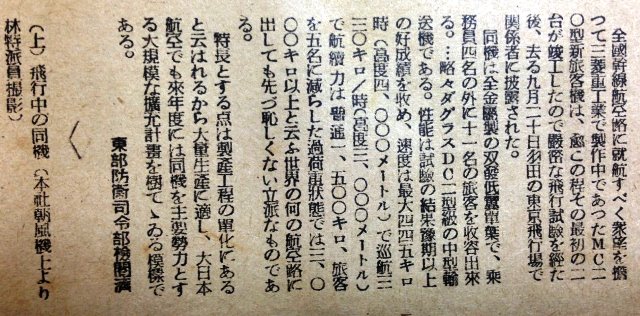 全國幹線航空路に就航すべく衆望を擔
つて三菱重工業で製作中であつたMC二
〇型新旅客機は、愈この程その最初の二
台が竣工したので嚴密な飛行試驗を經た
後、去る九月二十日羽田の東京飛行場で
関係者に披露された。
同機は全金屬製の双發低翼單葉で、乘
務員四名の外に十一名の旅客を收容出來
る。…略々ダグラスDC二型級の中型輸
送機である。性能は試驗の結果豫期以上
の好成績を收め、速度は最大四四五キロ
時(高度四、〇〇〇メートル)で巡航三
三〇キロ/時(高度三、〇〇〇メートル)
で航續力は普通一、五〇〇キロ、旅客
を五名に減らした過荷重狀態では三、〇
〇〇キロ以上と云ふ世界の何の航空路に
出しても先づ恥しくない立派なものであ
る。
特長とする点は製産工程の單化にある
と云はれるから大量生産に適し、大日本
航空でも來年度には同機を主要勢力とす
る大規模な擴充計畫を樹てゝゐる模樣で
ある。
東部防衞司令部檢閲濟
(上)飛行中の同機(本社朝風機上より
林特派員撮影)